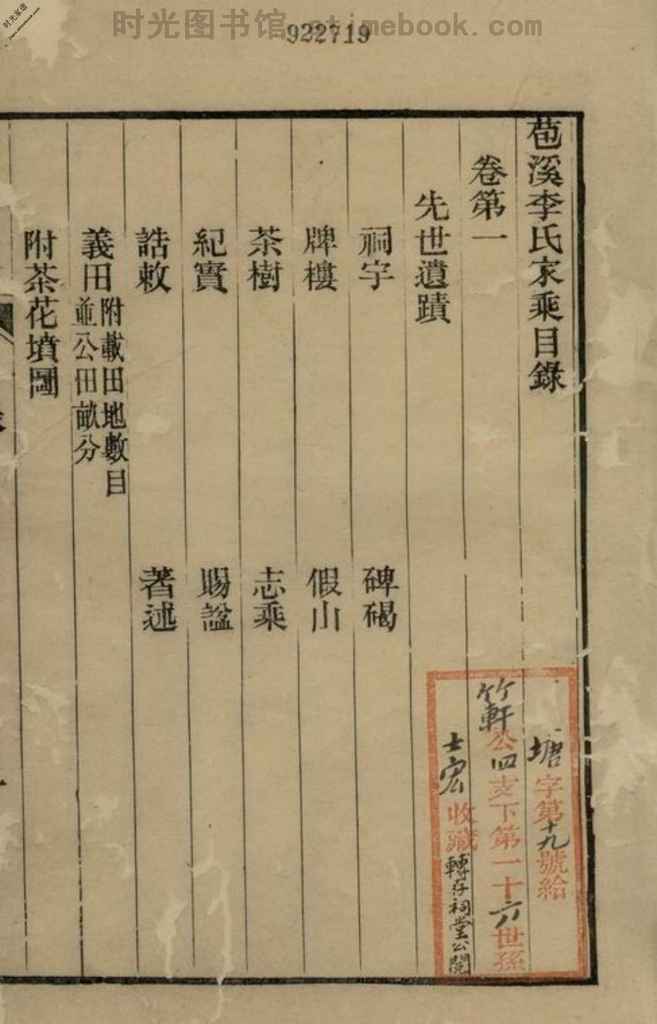 时光图书馆 @timebook.com
922719
苞溪李氏家乘目錄
卷第一
先世遺蹟
祠宇 碑碣
牌樓 假山
茶樹 志乘
紀實 賜諡
誥敕 著述
義田 附載田地數目
並公田畝分
附茶花墳圖
塘字第十九號給
竹軒公四支下第一十六世孫
士宏收藏轉存祠堂公閱